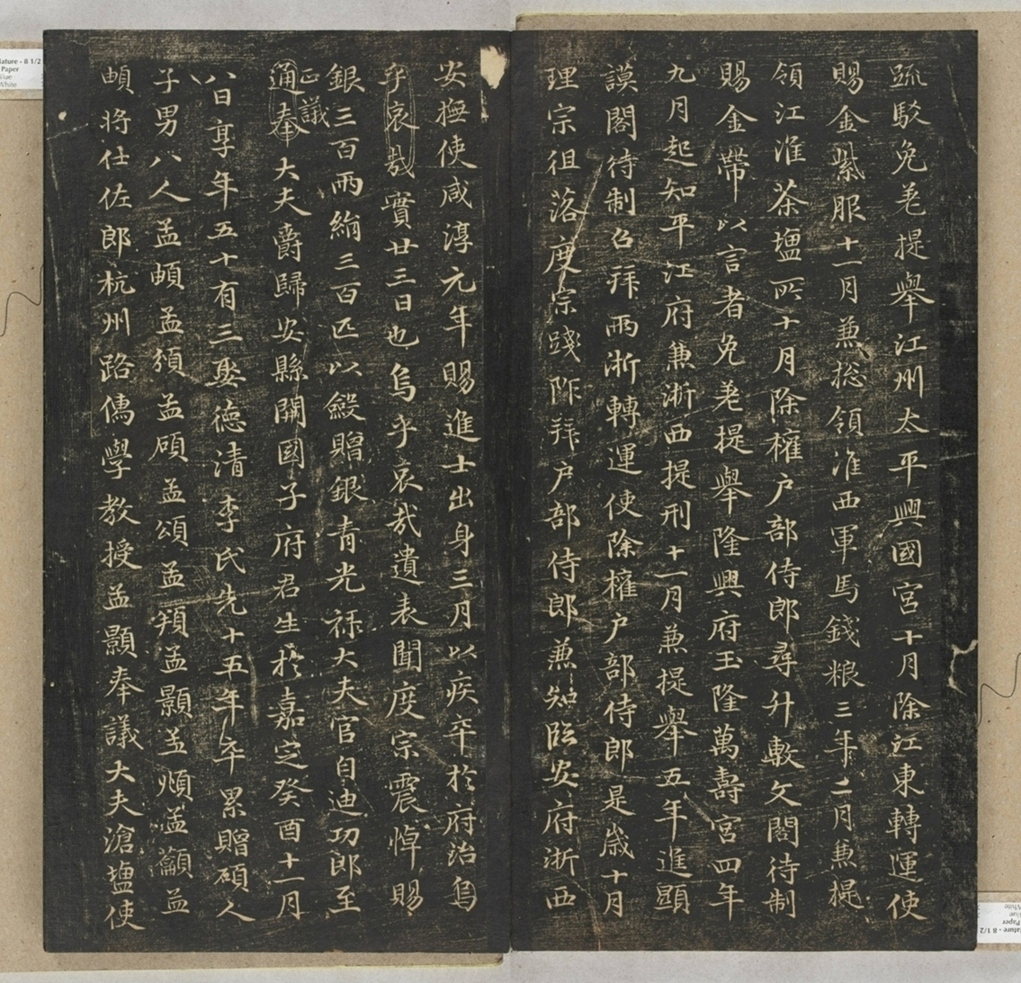 疏駁免差提舉江州太平興國宮十月除江東轉運使
賜金紫服十一月兼総領淮西軍馬錢粮三年二月兼提
領江淮茶塩所十月除權户部侍郎尋升敷文閣待制
賜金帶以言者免差提舉隆興府玉隆萬壽宮四年
九月起知平江府兼浙西提刑十一月兼提舉五年進顯
謨閣待制召拜兩浙轉運使除權户部侍郎是歲十月
理宗徂落度宗踐阼拜户部侍郎兼知臨安府浙西
安撫使咸淳元年賜進士出身三月以疾卒於府治烏
乎哀哉實廿三日也烏乎哀哉遺表聞度宗震悼賜
銀三百兩絹三百匹以斂贈銀青光祿大夫官自迪功郎至
正議
通奉大夫爵歸安縣開國子府君生於嘉定癸酉十一月
八日享年五十有三娶德清李氏先十五年卒累贈碩人
子男八人孟頔孟頒孟碩孟頌孟頖孟顥孟頫孟籲孟
頔將仕佐郎杭州路儒學教授孟顥奉議大夫滄塩使